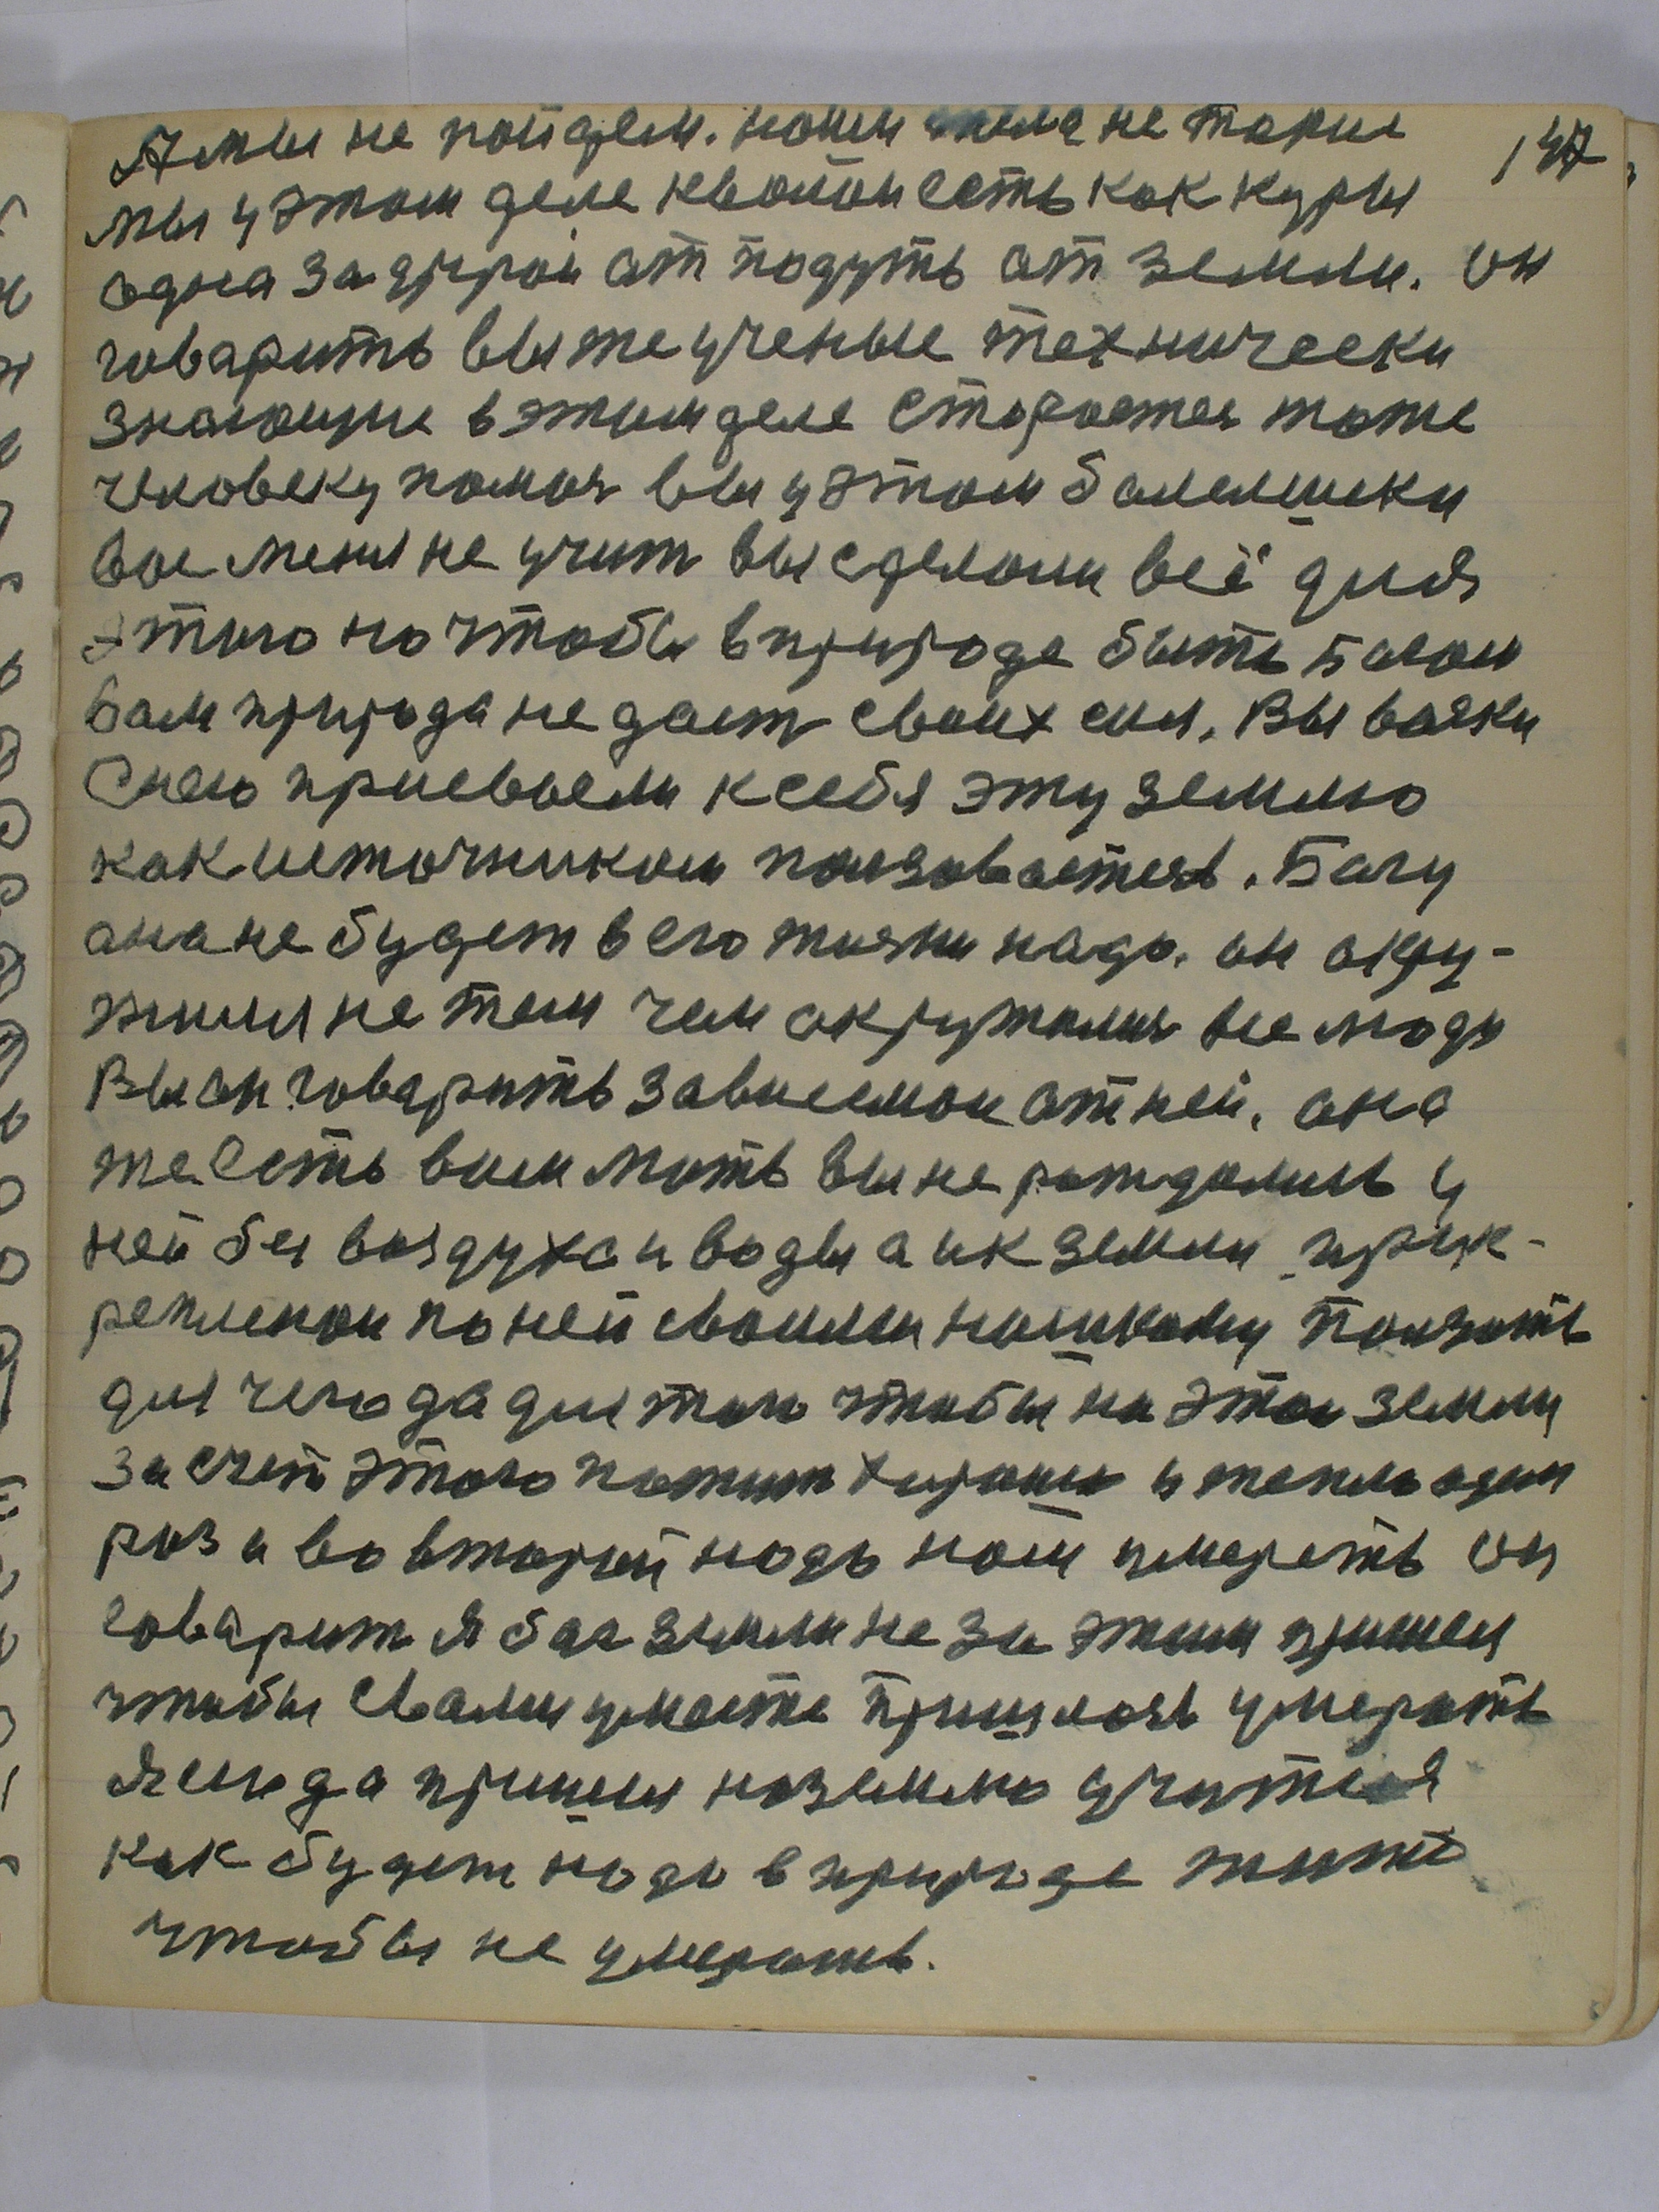 147
А мы не пойдем. наши тела не такие
мы у этом деле кволои есть как куры
одна за другой отпадуть от земли. он
говарить вы же ученые технически
знающие в этим деле стораетея тоже
человеку помоч вы у этом болельшеки
вое меня не учит вы сделали всё для
этого но чтобы в природе быть Богом
вам природа не дает своих сил. Вы вояки
с нею присвоели к себя эту землю
как источником ползоваетесь. Богу
она не будет в его жизни надо. он окру-
жился не тем чем окружалися все люди
Вы он говарить зависемои от ней. она
же есть ваш мать вы не рождались у
ней без воздуха и воды а и к земли прик-
репленои по ней своими ползоть
для чего да для того чтобы на этои земли
за счет этого пожит хорошо и тепло один
раз а во вторый надо нам умереть он
говарит я бог земли не за этим пришел
чтобы с вами уместе пришлось умерать
я сюда пришел на землю учитея
как будет надо в природе жить
чтобы не умерать.